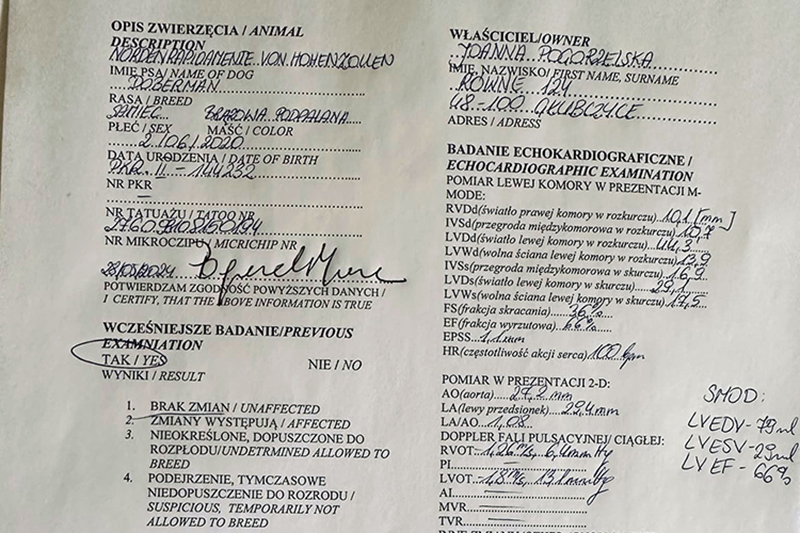 OPIS ZWIERZĘCIA / ANIMAL
DESCRIPTION
NORDENRAPIDAMENTE VON HOHENZOLLEN
IMIĘ PSA / NAME OF DOG
DOBERMAN
RASA / BREED
SAMIEC BRĄZOWA PODPALANA
PŁEĆ / SEX MAŚĆ / COLOR
2/06/2020
DATA URODZENIA / DATE OF BIRTH
PKR. II - 144232
NR PKR
—
NR TATUAŻU / TATOO NR
NR MIKROCZIPU / MICRICHIP NR
28/05/2024
POTWIERDZAM ZGODNOŚĆ POWYŻSZYCH DANYCH /
I CERTIFY, THAT THE ABOVE INFORMATION IS TRUE
WCZEŚNIEJSZE BADANIE/PREVIOUS
EXAMNIATION
TAK / YES NIE / NO
WYNIKI / RESULT
1. BRAK ZMIAN / UNAFFECTED
2. ZMIANY WYSTĘPUJĄ / AFFECTED
3. NIEOKREŚLONE, DOPUSZCZONE DO
ROZPŁODU/UNDETRMINED ALLOWED TO
BREED
4. PODEJRZENIE, TYMCZASOWE
NIEDOPUSZCZENIE DO ROZRODU /
SUSPICIOUS, TEMPORARILY NOT
ALLOWED TO BREED
WŁAŚCICIEL/OWNER
JOANNA POGORZELSKA
IMIĘ, NAZWISKO/ FIRST NAME, SURNAME
RÓWNE 124
48-100 GŁUBCZYCE
ADRES / ADRESS
BADANIE ECHOKARDIOGRAFICZNE /
ECHOCARDIOGRAPHIC EXAMINATION
POMIAR LEWEJ KOMORY W PREZENTACJI M-
MODE:
RVDd(światło prawej komory w rozkurczu) 10,1 [mm]
IVSd(przegroda międzykomorowa w rozkurczu) 10,7
LVDd(światło lewej komory w rozkurczu) 44,3
LVWd(wolna ściana lewej komory w rozkurczu) 13,9
IVSs(przegroda międzykomorowa w skurczu) 16,9
LVDs(światło lewej komory w skurczu) 29,1
LVWs(wolna ściana lewej komory w skurczu) 17,5
FS(frakcja skracania) 36%
EF(frakcja wyrzutowa) 66%
EPSS 1,1mm
HR(częstotliwość akcji serca) 100 bpm
POMIAR W PREZENTACJI 2-D:
AO(aorta) 27,2 mm
LA(lewy przedsionek) 29,4mm
LA/AO 1,08
DOPPLER FALI PULSACYJNEJ/ CIĄGŁEJ:
RVOT: 1,26m/s, 6,4mmHg
PI —
LVOT 1,8m/s, 13,1mmHg
AI —
MVR —
TVR —
SMOD:
LVEDV - 79ml
LVESV - 29ml
LVEF - 66%